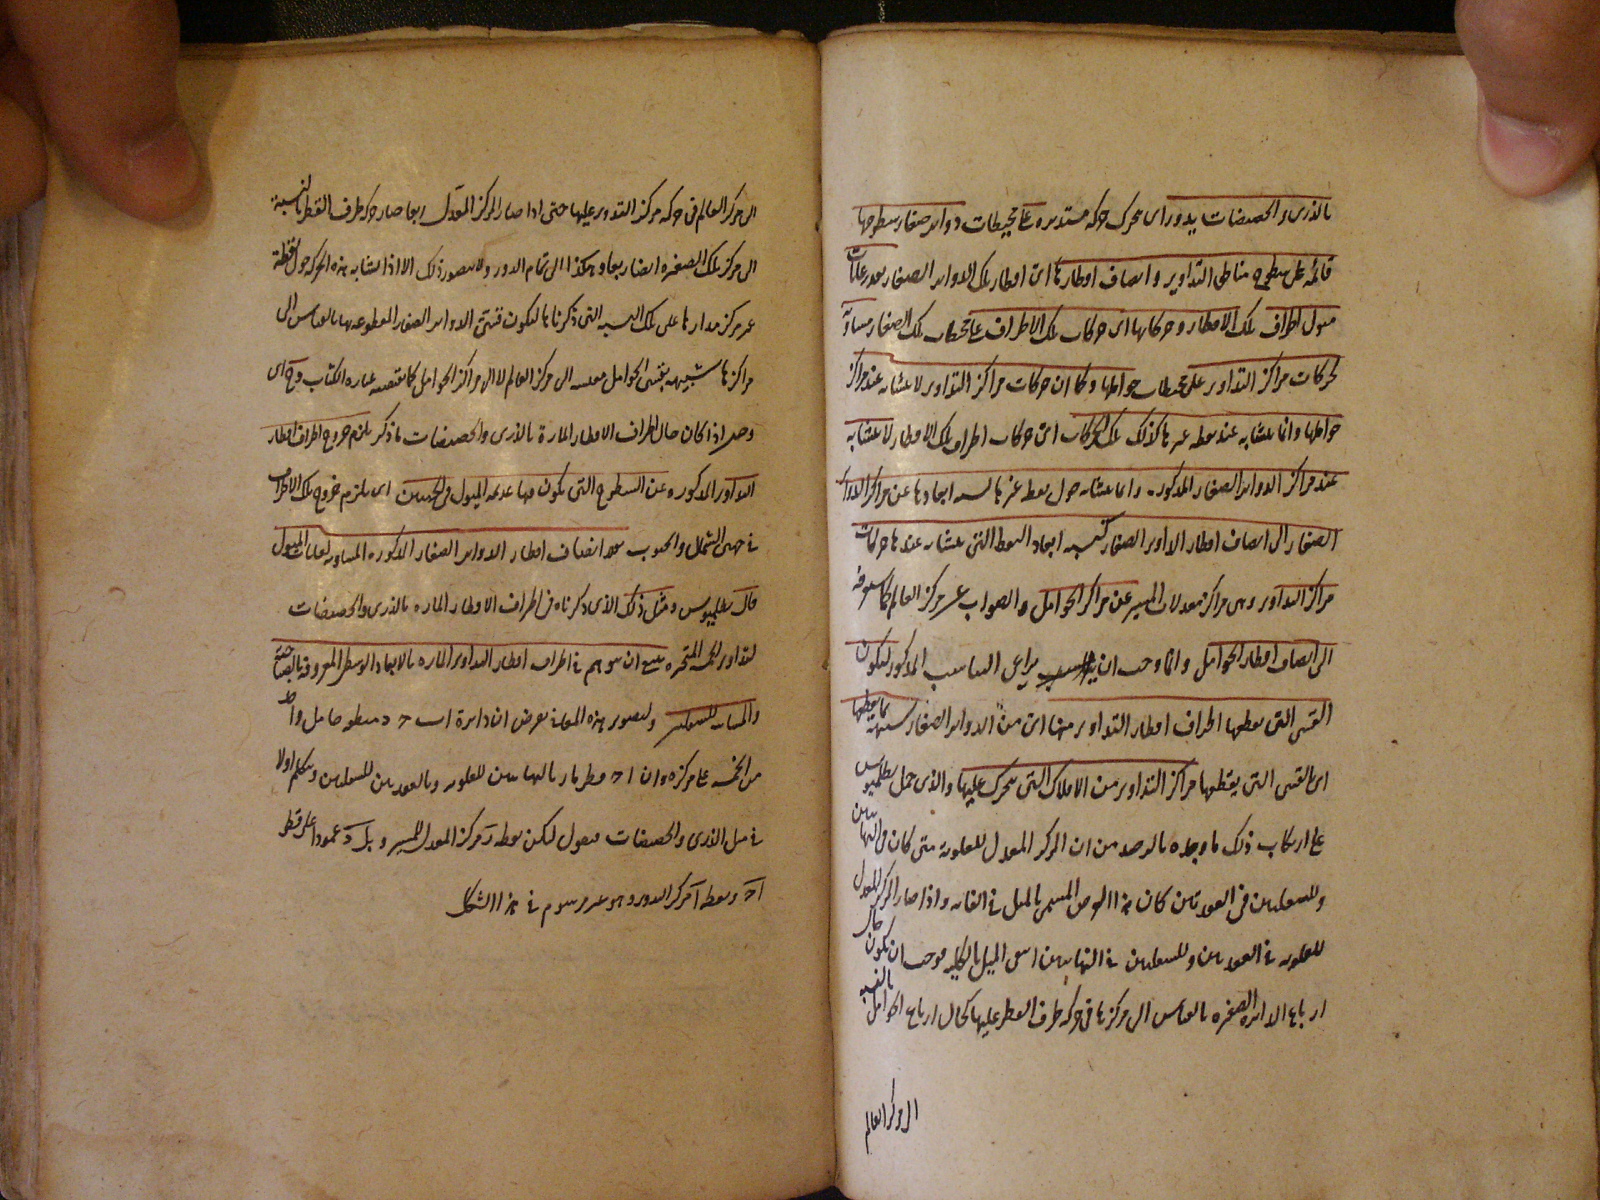 بالذرى والحضيضات يدور اى يتحرك حركة مستديرة على محيطات دواير صغار سطوحها
قائمة على سطوح مناطق التداوير وانصاف اقطارها اى اقطار تلك الدواير الصغار بقدر غايات
ميول اطراف تلك الاقطار وحركاتها اى حركات تلك الاطراف على محيطات تلك الصغار مساوية
لحركات مراكز التداوير على محيطات حواملها وكما ان حركات مراكز التداوير لا تتشابه عند مراكز
حواملها وانما تتشابه عند نقطة غيرها كذلك تلك الحركات اى حركات اطراف تلك الاقطار لا تتشابه
عند مراكز الدواير الصغار المذكورة وانما تتشابه حول نقط غيرها نسبة ابعادها عن مراكز الدواير
الصغار الى انصاف اقطار الدواير الصغار كنسبة ابعاد النقط التى تتشابه عندها حركات
مراكز التداوير وهى مراكز معدلات المسير عن مراكز الحوامل والصواب عن مركز العالم كما ستعرفه
الى انصاف اقطار الحوامل وانما وجب ان يراعى التناسب المذكور لتكون
القسى التى يقطعها اطراف اقطار التداوير منها اى من الدواير الصغار شبيهة بما يقطعها
اى بالقسى التى يقطعها مراكز التداوير من الافلاك التى تتحرك عليها والذى حمل بطلميوس
على ارتكاب ذلك ما وجده بالرصد من ان المركز المعدل للعلوية متى كان فى النهايتين
وللسفليين فى العقدتين كان هذا العرض المسمى بالميل فى الغاية واذا صار المركز المعدل
للعلوية فى العقدتين وللسفليين فى النهايتين انتفى الميل بالكلية فوجب ان يكون حال
ارباع الدايرة الصغيرة بالقياس الى مركزها فى حركة طرف القطر عليها كحال ارباع الحوامل بالنسبة
الى مركز العالم
الى مركز العالم فى حركة مركز التدوير عليها حتى اذا صار المركز المعدل ربعا صار حركة طرف القطر بالنسبة
الى مركز تلك الصغيرة ايضا ربعا وهكذا الى تمام الدور ولا يتصور ذلك الا اذا تشابه هذه الحركة حول نقطة
غير مركز مدارها على تلك النسبة التى ذكرناها لتكون قسى الدواير الصغار المقطوعة بها بالقياس الى
مراكزها شبيهة بقسى الحوامل مقيسة الى مركز العالم لا الى مراكز الحوامل كما تقتضيه عبارة الكتاب وح اى
وحين اذا كان حال اطراف الاقطار المارة بالذرى والحضيضات ما ذكر يلزم خروج اطراف اقطار
التداوير المذكورة عن السطوح التى تكون فيها عديمة الميول فى الجهتين اى يلزم خروج تلك الاطراف
فى جهتى الشمال والجنوب بقدر انصاف اقطار الدواير الصغار المذكورة المساوية لغايات الميول
قال بطلميوس ومثل ذلك الذى ذكرناه فى اطراف الاقطار المارة بالذرى والحضيضات
لتداوير الخمسة المتحيرة ينبغى ان يتوهم فى اطراف اقطار التداوير المارة بالابعاد الوسطى
والمسائية للسفليين ولتصوير هذه المعانى نفرض ان دايرة ا ب ح د منطقة حامل واحد
من الخمسة على مركز ه وان ا ح قطر مار بالنهايتين للعلوية وبالعقدتين للسفليين ونتكلم اولا
فى ميل الذرى والحضيضات فنقول لتكن نقطة ز مركز المعدل للمسير و ب ز د عمودا على قطر
ا ح ونقطة ا مركز التدوير وهو غير مرسوم فى هذا الشكل